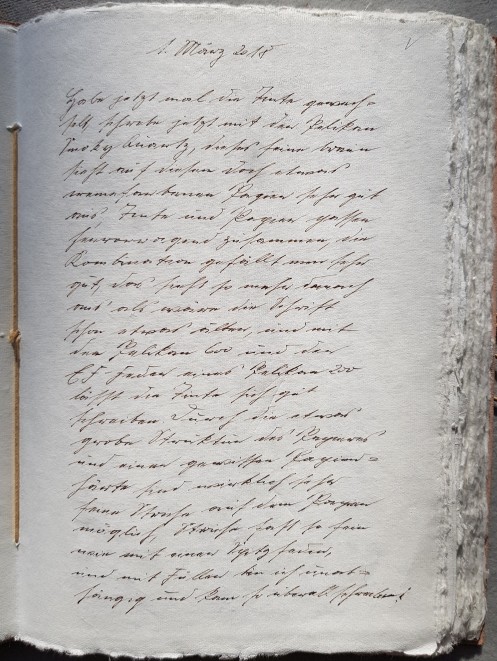 1. März 2018
Habe jetzt mal die Tinte gewech=
selt, schreibe jetzt mit der Pelikan
Smoky Quartz, dieses feine braun
sieht auf diesem doch etwas
Papier sehr gut
aus, Tinte und Papier passen
hervorragend zusammen, die
Kombination gefällt mir sehr
gut, das sieht so mehr danach
aus als wäre die Schrift
schon etwas älter, und mit
dem Pelikan 600 und der
EF Feder eines Pelikan 200
lässt die Tinte sich gut
schreiben. Durch die etwas
grobe Struktur des Papieres
und einer gewissen Papier=
härte sind wirklich sehr
feine Striche auf dem Papier
möglich, Striche fast so fein
wie mit einer Spitzfeder,
und mit Füller bin ich unab=
hängig und kann so überall schreiben!